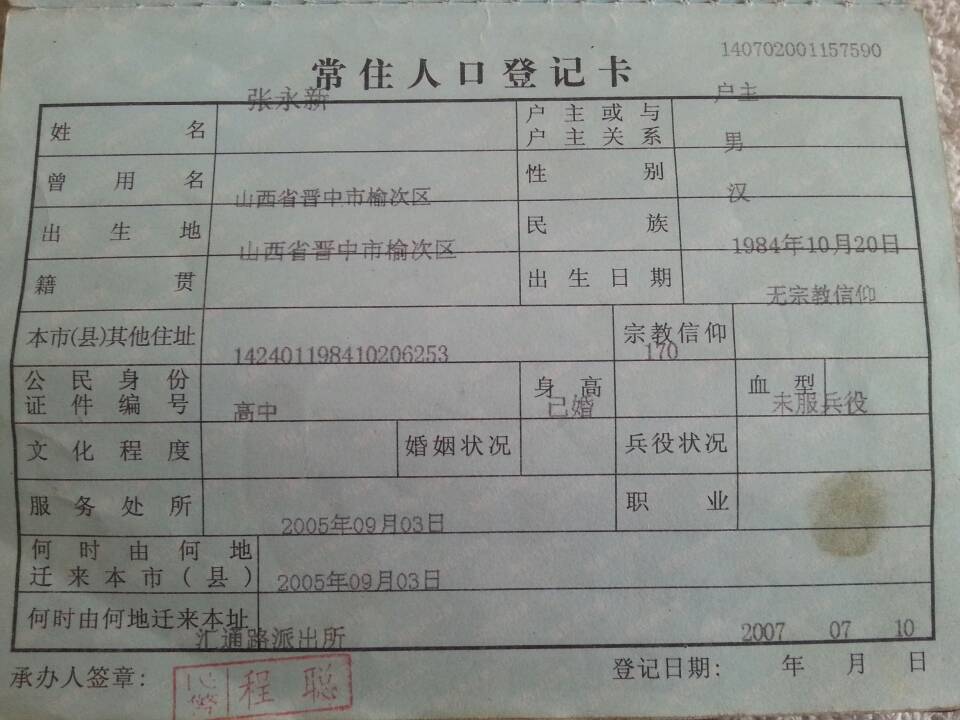 140702001157590
常住人口登记卡
姓名 张永新 户主或与户主关系 户主
曾用名 性别 男
出生地 山西省晋中市榆次区 民族 汉
籍贯 山西省晋中市榆次区 出生日期 1984年10月20日
本市(县)其他住址 宗教信仰 无宗教信仰
公民身份证件编号 142401198410206253 身高 170 血型
文化程度 高中 婚姻状况 已婚 兵役状况 未服兵役
服务处所 职业
何时由何地迁来本市(县) 2005年09月03日
何时由何地迁来本址 2005年09月03日
汇通路派出所
承办人签章: 程聪 登记日期: 2007年07月10日